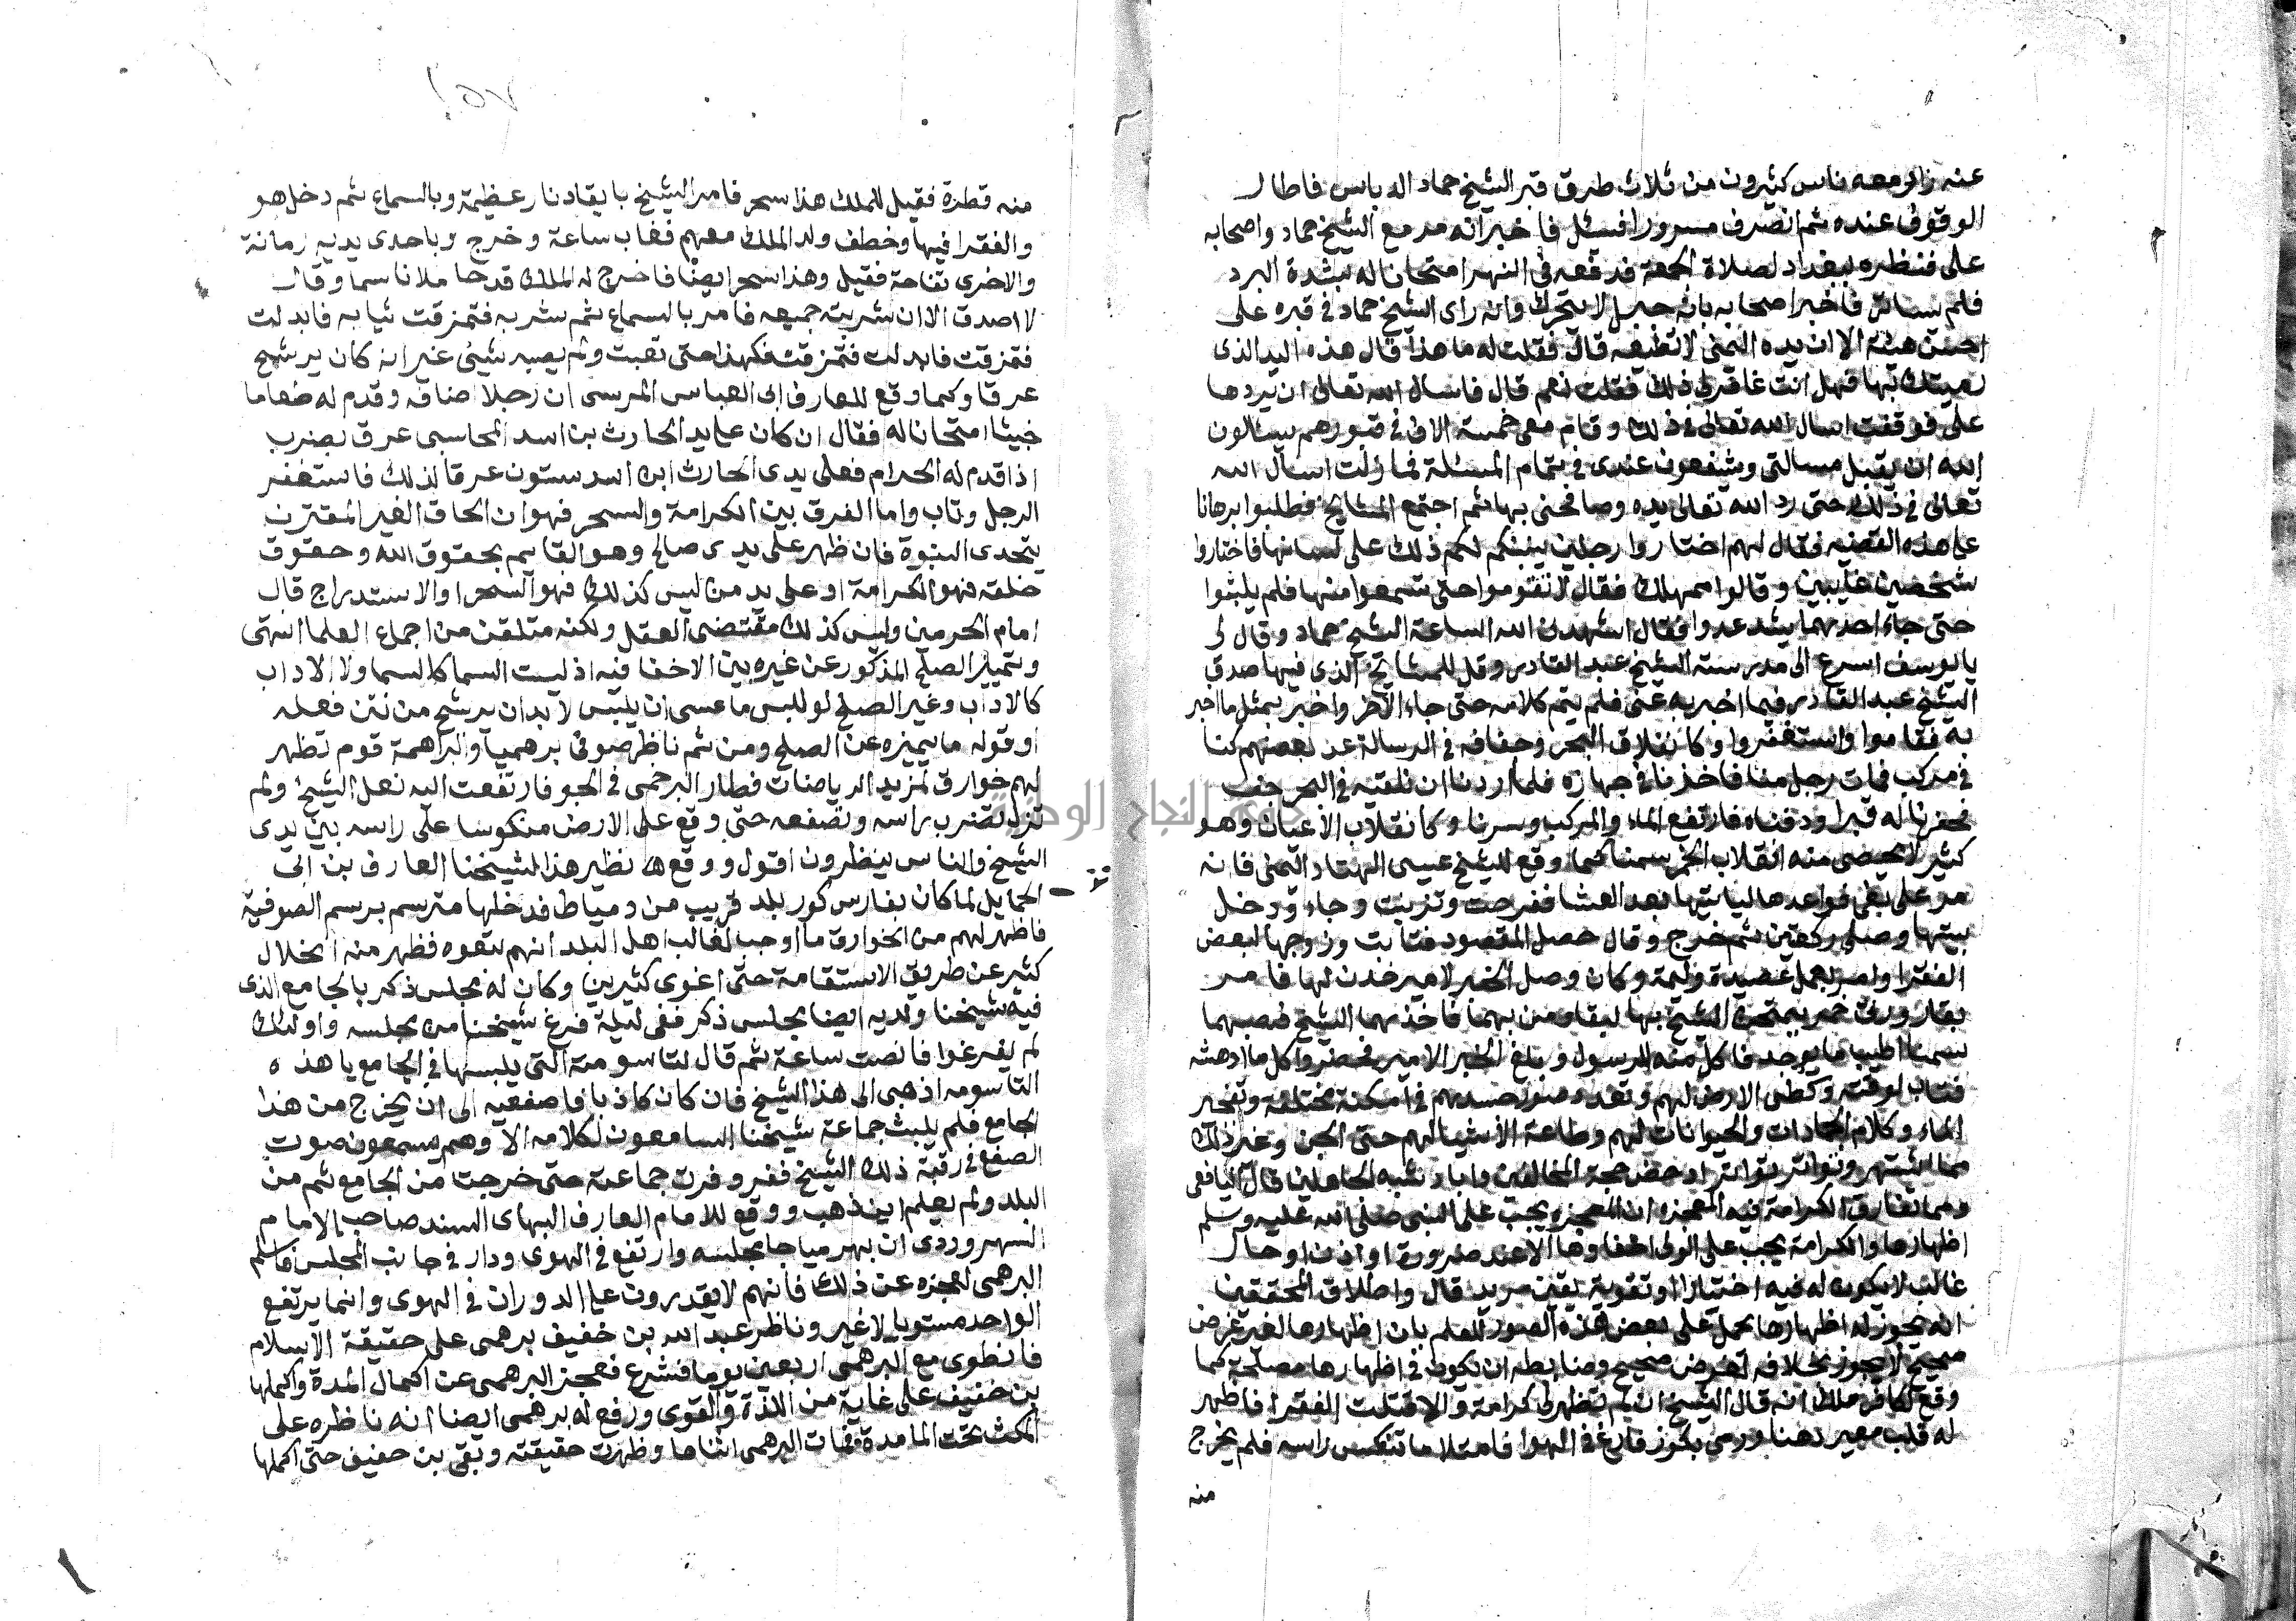 عنه زار ومعه ناس كثيرون من ثلاث طرق قبر الشيخ حماد الدباس فاطال
الوقوف عنده ثم انصرف مسرورا فسئل فاخبر انه مر مع الشيخ حماد واصحابه
على قنطره ببغداد لصلاة الجمعة فدفعه في النهر امتحانا له بشدة البرد
فلم يتاثر فاخبر اصحابه بانه جبل لا يتحرك وانه راى الشيخ حماد في قبره على
احسن هيئة الا ان يده اليمنى لا تطيعه قال فقلت له ما هذا قال هذه اليد الذى
رميتك بها فهل انت غافر لى ذلك فقلت نعم قال فاسال الله تعالى ان يردها
على فوقفت اسال الله تعالى في ذلك وقام معى خمسة الاف في قبورهم يسالون
الله ان يقبل مسالتى وشفعون عندى في تمام المسئلة فما زلت اسال الله
تعالى في ذلك حتى رد الله تعالى يده وصافحنى بها ثم اجتمع المشايخ فطلبوا برهانا
على هذه القضيه فقال لهم اختاروا رجلين ينبئكم لكم ذلك على لسانها فاختاروا
شخصين غايبين وقالوا مهلك فقال لا تقوموا حتى تسمعوا منها فلم يلبثوا
حتى جاء احدهما يشتد عدوا فقال اشهدنى الله الساعة الشيخ حماد وقال لى
يا يوسف اسرع الى مدرسة الشيخ عبد القادر وقل للمشايخ الذى فيها صدق
الشيخ عبد القادر فيما اخبر به عنى فلم يتم كلامه حتى جاء الاخر واخبر بمثل ما اخبر
به فقاموا واستغفروا وكانفلاق البحر وجفافه في الرسالة عن بعضهم كنا
في مركب فمات رجل منا فاخذنا في جهازه فلما اردنا ان نلقيه في البحر جف
فحفرنا له قبرا ودفناه فارتفع الماء والمركب وسرنا وكانقلاب الاعيان وهو
كثير لا يحصى منه انقلاب الخمر سمنا كما وقع للشيخ عيسى الهتار اليمنى فانه
مر على بغى فواعدها لياتيها بعد العشا ففرحت وتزينت وجاء ودخل
بيتها وصلى ركعتين ثم خرج وقال حصل المقصود فتابت وزوجها لبعض
الفقرا وامر بعمل عصيدة وليمة وكان وصل الخبر لامير خدن لها فامر
بقارورتى خمر يمتحن الشيخ بها فاخذهما الشيخ فصبهما
سمنا اطيب ما يوجد فاكل منه الرسول وبلغ الخبر الامير فحضر واكل ما ادهشه
فتاب لوقته وكطى الارض لهم وتعدد صور جسدهم في امكنة مختلفة وتفجير
الماء وكلام الجمادات والحيوانات لهم وطاعة الاشيا لهم حتى الجن وغير ذلك
مما اشتهر وتواتر تواترا ادحض حجة المخالفين واباد شبه الجاهلين قال اليافعى
ومما تفارق الكرامة فيه المعجزه ان المعجزه يجب على النبى صلى الله عليه وسلم
اظهارها والكرامة يجب على الولى اخفاوها الا عند ضرورة او اذن او حال
غالب لا يكون له فيه اختيار او تقوية يقين مريد قال واطلاق المحققين
انه يجوز له اظهارها يحمل على بعض هذه الصور للعلم بان اظهارها لغير غرض
صحيح لا يجوز بخلافه لغرض صحيح وضابطه ان يكون في اظهارها مصلحة كما
وقع لكافر ملك انه قال للشيخ ان لم تظهر لى كرامة والا قتلت الفقرا فاظهر
له قلب بعير ذهبا ورمى بكوز فارغ في الهوا فامتلا ما تنكس راسه فلم يخرج
منه
منه قطرة فقيل للملك هذا سحر فامر الشيخ بايقاد نار عظيمة وبالسماع ثم دخل هو
والفقرا فيها وخطف ولد الملك معهم فغاب ساعة وخرج وباحدى يديه رمانة
والاخرى تفاحة فقيل وهذا سحر ايضا فاخرج له الملك قدحا ملانا سما وقال
لا اصدق الا ان شربته جميعه فامر بالسماع ثم شربه فتمزقت ثيابه فابدلت
فتمزقت فابدلت فتمزقت فكهذا حتى تعبت ولم يصبه شيئ غير انه كان يرشح
عرقا وكما وقع للعارف ابى العباس المرسى ان رجلا ضافه وقدم له طعاما
خبيثا امتحانا له فقال ان كان على يد الحارث بن اسد المحاسبى عرق يضرب
اذا قدم له الحرام فعلى يدى الحارث ابن اسد ستون عرقا لذلك فاستغفر
الرجل وتاب واما الفرق بين الكرامة والسحر فهو ان الخارق الغير المقترن
بتحدى النبوة فان ظهر على يدى صالح وهو القايم بحقوق الله وحقوق
خلقه فهو الكرامة او على يد من ليس كذلك فهو السحر او الاستدراج قال
امام الحرمين وليس كذلك مقتضى العقل ولكنه متلقن من اجماع العلما انتهى
وتمييز الصلح المذكور عن غيره بين الاخفا فيه اذ ليست السما كالسما ولا الاداب
كالاداب وغير الصلح لو للبس ما عسى ان يلبس لا بد ان يرشح من نتن فعله
او قوله ما يميزه عن الصلح ومن ثم ناظر صوفى برهميا والبراهمة قوم تظهر
لهم خوارق لمزيد الرياضات فطار البرهمى في الجو فارتفعت اليه نعل الشيخ ولم
تزل تضرب راسه وتصفعه حتى وقع على الارض منكوسا على راسه بين يدى
الشيخ والناس ينظرون اقول ووقع نظير هذا لشيخنا العارف بن ابى
الحمايل لما كان بفارسكور بلد قريب من دمياط فدخلها مترسم برسم الصوفية
فاظهر لهم من الخوارق ما اوجب لغالب اهل البلد انهم تبعوه فظهر منه انحلال
كثير عن طريق الاستقامة حتى اغوى كثيرين وكان له مجلس ذكر بالجامع الذى
فيه شيخنا ولديه ايضا مجلس ذكر ففى ليلة فرغ شيخنا من مجلسه واوليك
لم يفرغوا فانصت ساعة ثم قال لتاسومته التى يلبسها في الجامع يا هذه
التاسومه اذهبى الى هذا الشيخ فان كان كاذبا فاصفعيه الى ان يخرج من هذا
الجامع فلم يلبث جماعة شيخنا السامعون لكلامه الا وهم يسمعون صوت
الصفع في رقبة ذلك الشيخ ففر وفرت جماعته حتى خرجت من الجامع ثم من
البلد ولم يعلم اين ذهب ووقع للامام العارف البهاى السند صاحب الامام
السهروردى ان بهرميا جا مجلسه وارتفع في الهوى ودار في جانب المجلس فاسلم
البرهمى لعجزه عن ذلك فانهم لا يقدرون على الدوران في الهوى وانما يرتفع
الواحد مستويا لا غير وناظر عبد الله بن خفيف برهمى على حقيقة الاسلام
فانطوى مع البرهمى اربعين يوما فشرع فعجز البرهمى عن اكمال المدة واكملها
بن خفيف على غاية من اللذة والقوى ورفع له برهمى ايضا انه ناظره على
المكث تحت الما مدة فمات البرهمى اثناها وظهرت حقيقته وبقى بن خفيف حتى اكملها
جامعة النجاح الوطنية